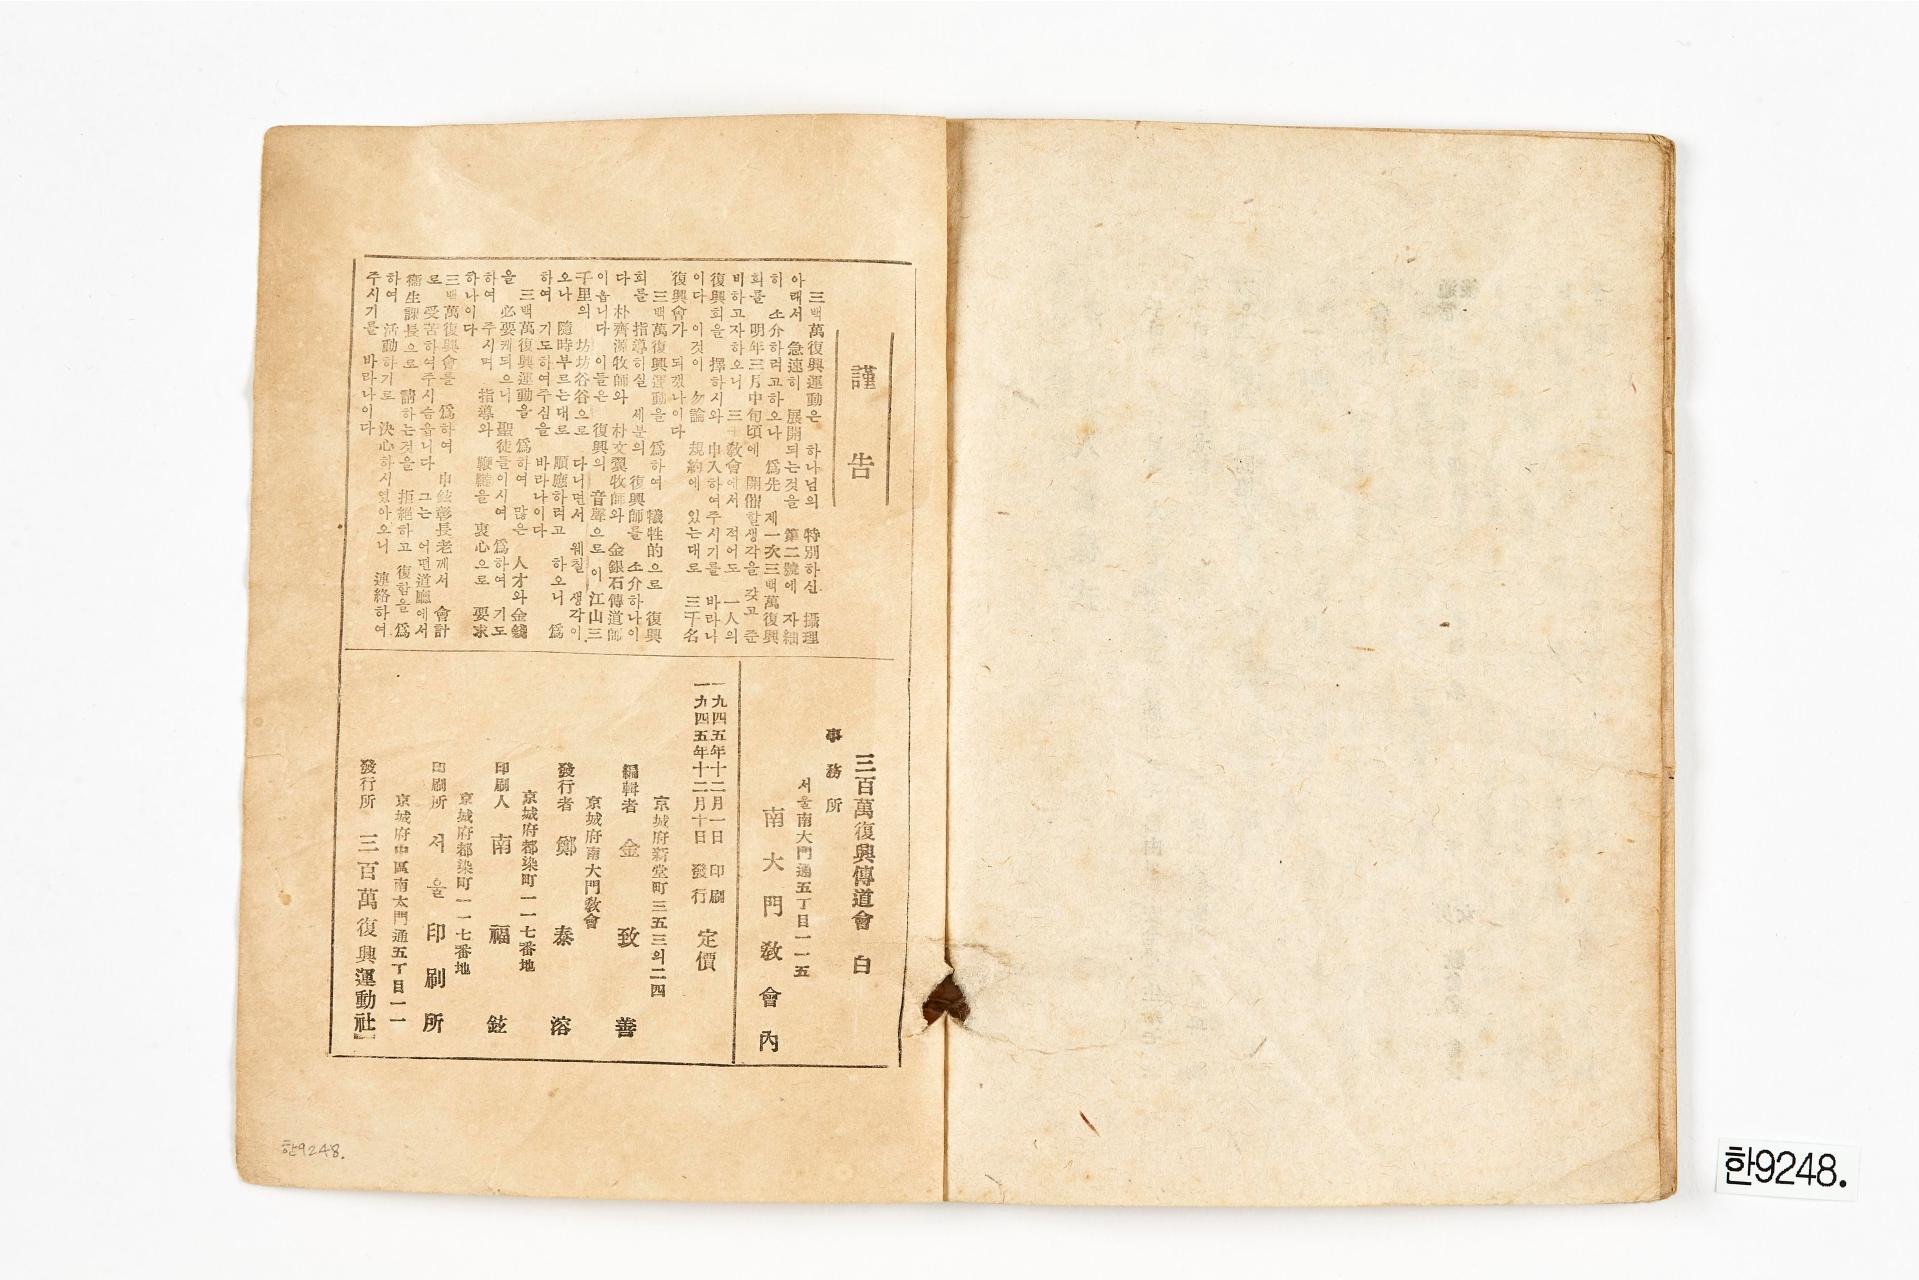 謹告
三백萬復興運動은 하나님의 特別하신 攝理
아래서 急速히 展開되는것을 第二號에 자細
히 소介하려고하오나 爲先 제一次三백萬復興
회를 明年三月中旬頃에 開催할생각을 갖고 준
비하고자하오니 三千敎會에서 적어도 一人의
復興회을 擇하시와 申入하여주시기를 바라나
이다 이것이 勿論 規約에 있는대로 三千名
復興會가 되겠나이다
三백萬復興運動을 爲하여 犧牲的으로 復興
회를 指導하실 세분의 復興師를 소介하나이
다 朴齊源牧師와 朴文翼牧師와 金銀石傳道師
이옵니다 이들은 復興의 音聲으로 이 江山三
千里의 坊坊谷谷으로 다니면서 웨칠 생각이
오나 隨時부르는대로 順應하려고 하오니 爲
하여 기도하여주심을 바라나이다
三백萬復興運動을 爲하여 많은 人才와金錢
을 必要케되으니 聖徒들이시여 爲하여 기도
하여 주시며 指導와 鞭韃을 衷心으로 要求
하나이다
三백萬復興會를 爲하여 申鉉彰長老께서 會計
로 受苦하여주시슴읍니다 그는 어떤道廳에서
衛生課長으로 請하는것을 拒絶하고 復함을 爲
하여 活動하기로 決心하시였아오니 連絡하여
주시기를 바라나이다
三百萬復興傳道會 白
事務所
서울南大門通五丁目一一五
南大門敎會內
一九四五年十二月一日 印刷
一九四五年十二月十日 發行
定價
京城府新堂町三五三의二四
編輯者 金致善
京城府南大門敎會
發行者 鄭泰溶
京城府都染町一一七番地
印刷人 南福鉉
京城府都染町一一七番地
印刷所 서울印刷所
京城府中區南大門通五丁目一一
發行所 三百萬復興運動社
한9248.
한9248.